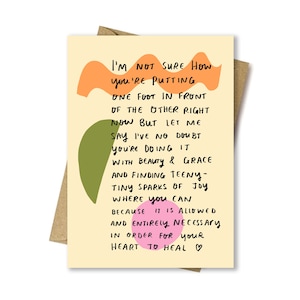 I'M NOT SURE HOW
YOU'RE PUTTING
ONE FOOT IN FRONT
OF THE OTHER RIGHT
NOW BUT LET ME
SAY I'VE NO DOUBT
YOU'RE DOING IT
WITH BEAUTY & GRACE
AND FINDING TEENY-
TINY SPARKS OF JOY
WHERE YOU CAN
BECAUSE IT IS ALLOWED
AND ENTIRELY NECESSARY
IN ORDER FOR YOUR
HEART TO HEAL ♡